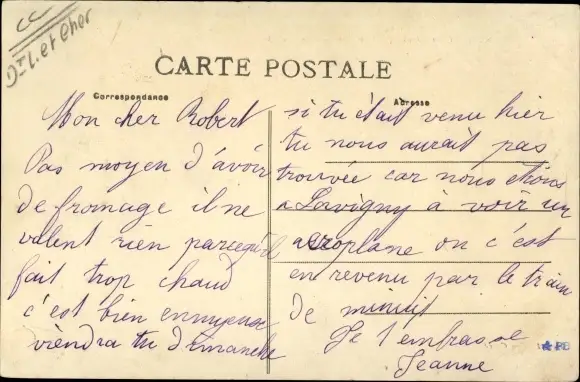 CC
Dt L. et Cher
CARTE POSTALE
Correspondance
Adresse
Mon cher Robert
Pas moyen d'avoir
de fromage il ne
valent rien parcequ'il
fait trop chaud
c'est bien ennuyeux
viendra tu dimanche
si tu était venu hier
tu nous aurait pas
trouvée car nous étions
a Savigny à voir un
aeroplane on c'est
en revenu par le train
de minuit
Je t'embrasse
Jeanne